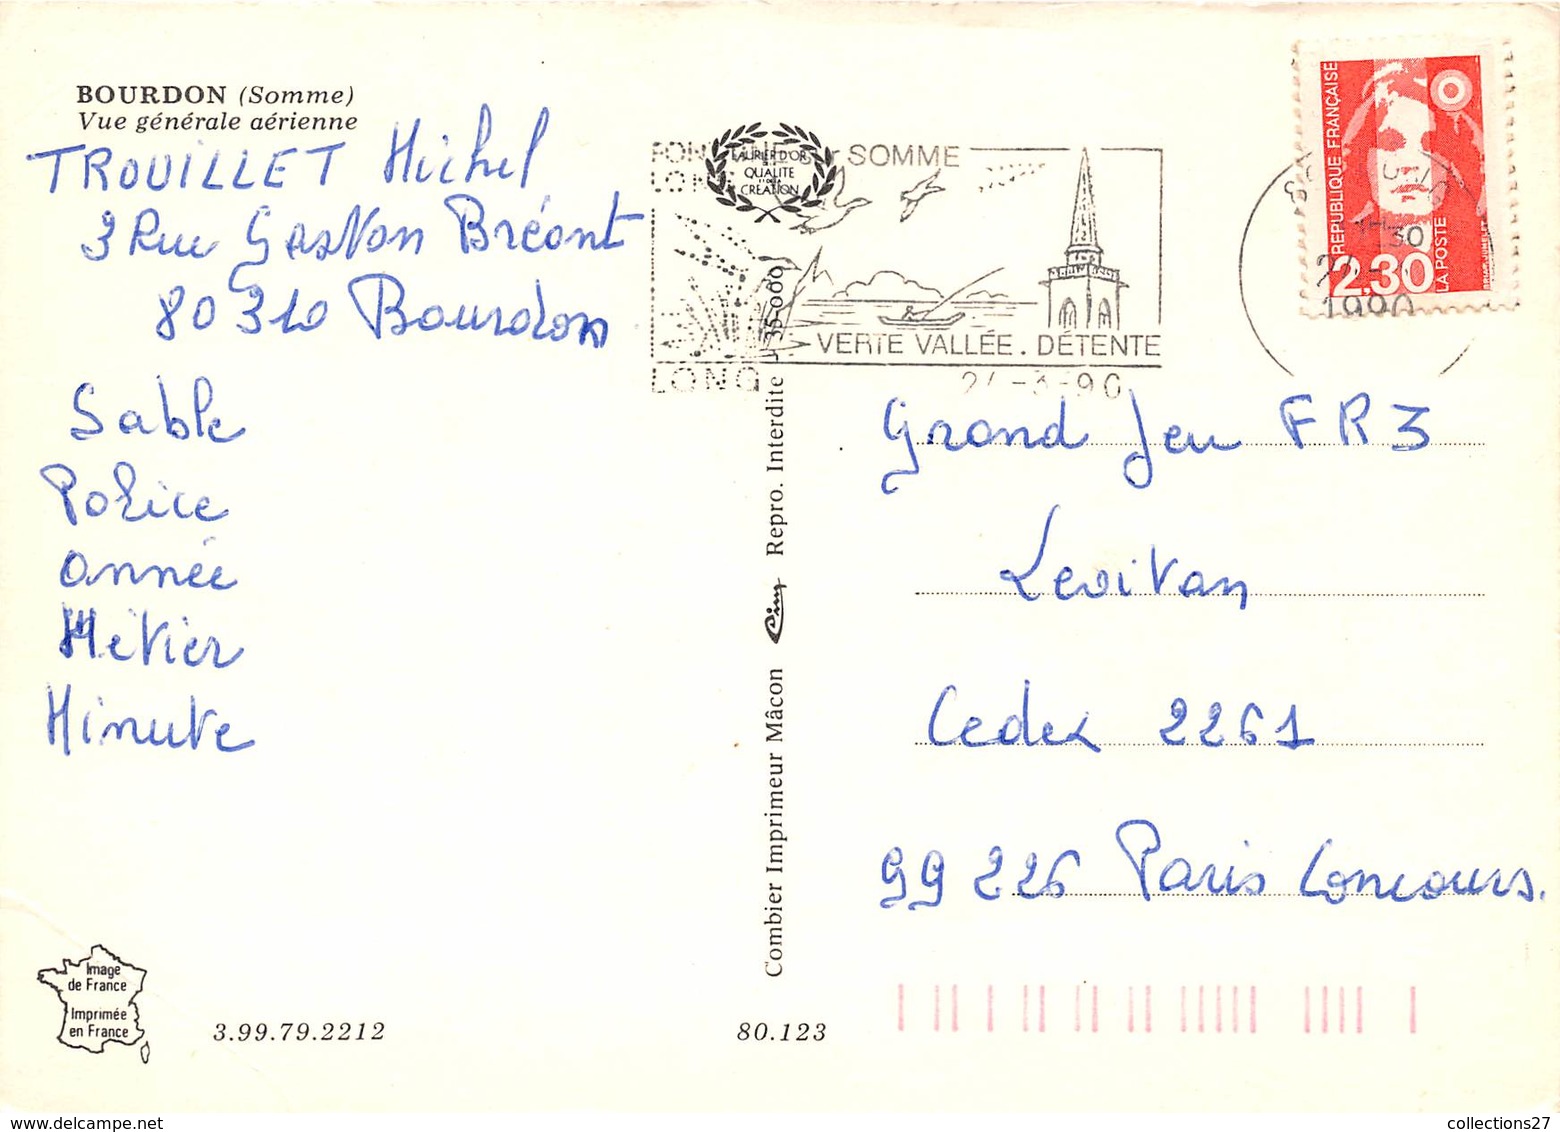 BOURDON (Somme)
Vue générale aérienne
TROUILLET Michel
3 Rue Gaston Bréant
80310 Bourdon
Sable
Police
année
Métier
Minute
Image
de France
Imprimée
en France
3.99.79.2212
80.123
Combier Imprimeur Mâcon Cim Repro. Interdite
LAURIER D'OR
QUALITE
CREATION
SOMME
LONG
VERTE VALLÉE. DÉTENTE
LONG
-3-90
RÉPUBLIQUE FRANÇAISE
2,30
LA POSTE
30
1990
Grand Jeu FR3
Levitan
Cedex 2261
99 226 Paris Concours.
collections27